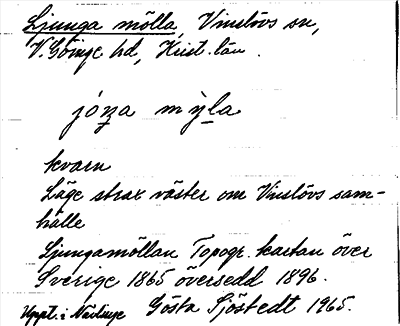 Ljunga mölla, Vinslövs sn,
V. Göinge hd, Krist. län.
jóŋa mỳla
kvarn
Läge strax väster om Vinslövs sam-
hälle
Ljungamöllan Topogr. kartan över
Sverige 1865 översedd 1896.
Uppt. i Nävlinge Gösta Sjöstedt 1965.